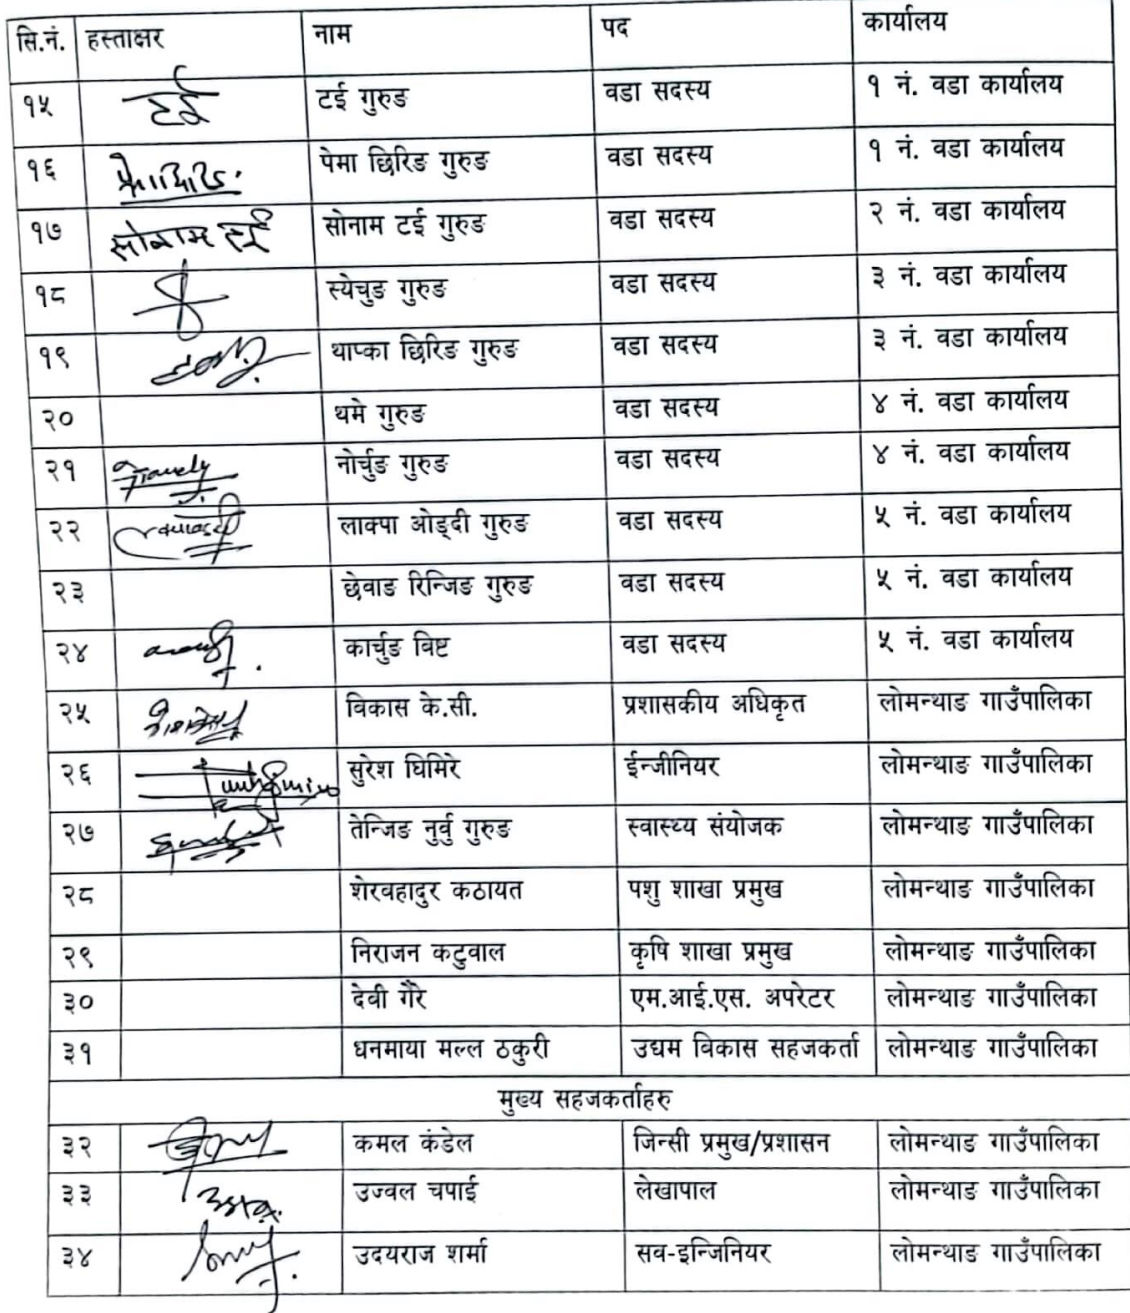 सि.नं. हस्ताक्षर नाम पद कार्यालय
१५ टई टई गुरुङ वडा सदस्य १ नं. वडा कार्यालय
१६ पेमा छिरिङ गुरुङ वडा सदस्य १ नं. वडा कार्यालय
१७ सोनाम टई सोनाम टई गुरुङ वडा सदस्य २ नं. वडा कार्यालय
१८ स्येचुङ गुरुङ वडा सदस्य ३ नं. वडा कार्यालय
१९ थाप्का छिरिङ गुरुङ वडा सदस्य ३ नं. वडा कार्यालय
२० थमे गुरुङ वडा सदस्य ४ नं. वडा कार्यालय
२१ नोर्चुङ गुरुङ वडा सदस्य ४ नं. वडा कार्यालय
२२ लाक्पा ओड्दी गुरुङ वडा सदस्य ५ नं. वडा कार्यालय
२३ छेवाङ रिन्जिङ गुरुङ वडा सदस्य ५ नं. वडा कार्यालय
२४ कार्चुङ विष्ट वडा सदस्य ५ नं. वडा कार्यालय
२५ विकास के.सी. प्रशासकीय अधिकृत लोमन्थाङ गाउँपालिका
२६ सुरेश घिमिरे ईन्जीनियर लोमन्थाङ गाउँपालिका
२७ तेन्जिङ नुर्वु गुरुङ स्वास्थ्य संयोजक लोमन्थाङ गाउँपालिका
२८ शेरवहादुर कठायत पशु शाखा प्रमुख लोमन्थाङ गाउँपालिका
२९ निराजन कटुवाल कृषि शाखा प्रमुख लोमन्थाङ गाउँपालिका
३० देवी गैरे एम.आई.एस. अपरेटर लोमन्थाङ गाउँपालिका
३१ धनमाया मल्ल ठकुरी उद्यम विकास सहजकर्ता लोमन्थाङ गाउँपालिका
मुख्य सहजकर्ताहरु
३२ कमल कंडेल जिन्सी प्रमुख/प्रशासन लोमन्थाङ गाउँपालिका
३३ उज्वल चपाई लेखापाल लोमन्थाङ गाउँपालिका
३४ उदयराज शर्मा सव-इन्जिनियर लोमन्थाङ गाउँपालिका